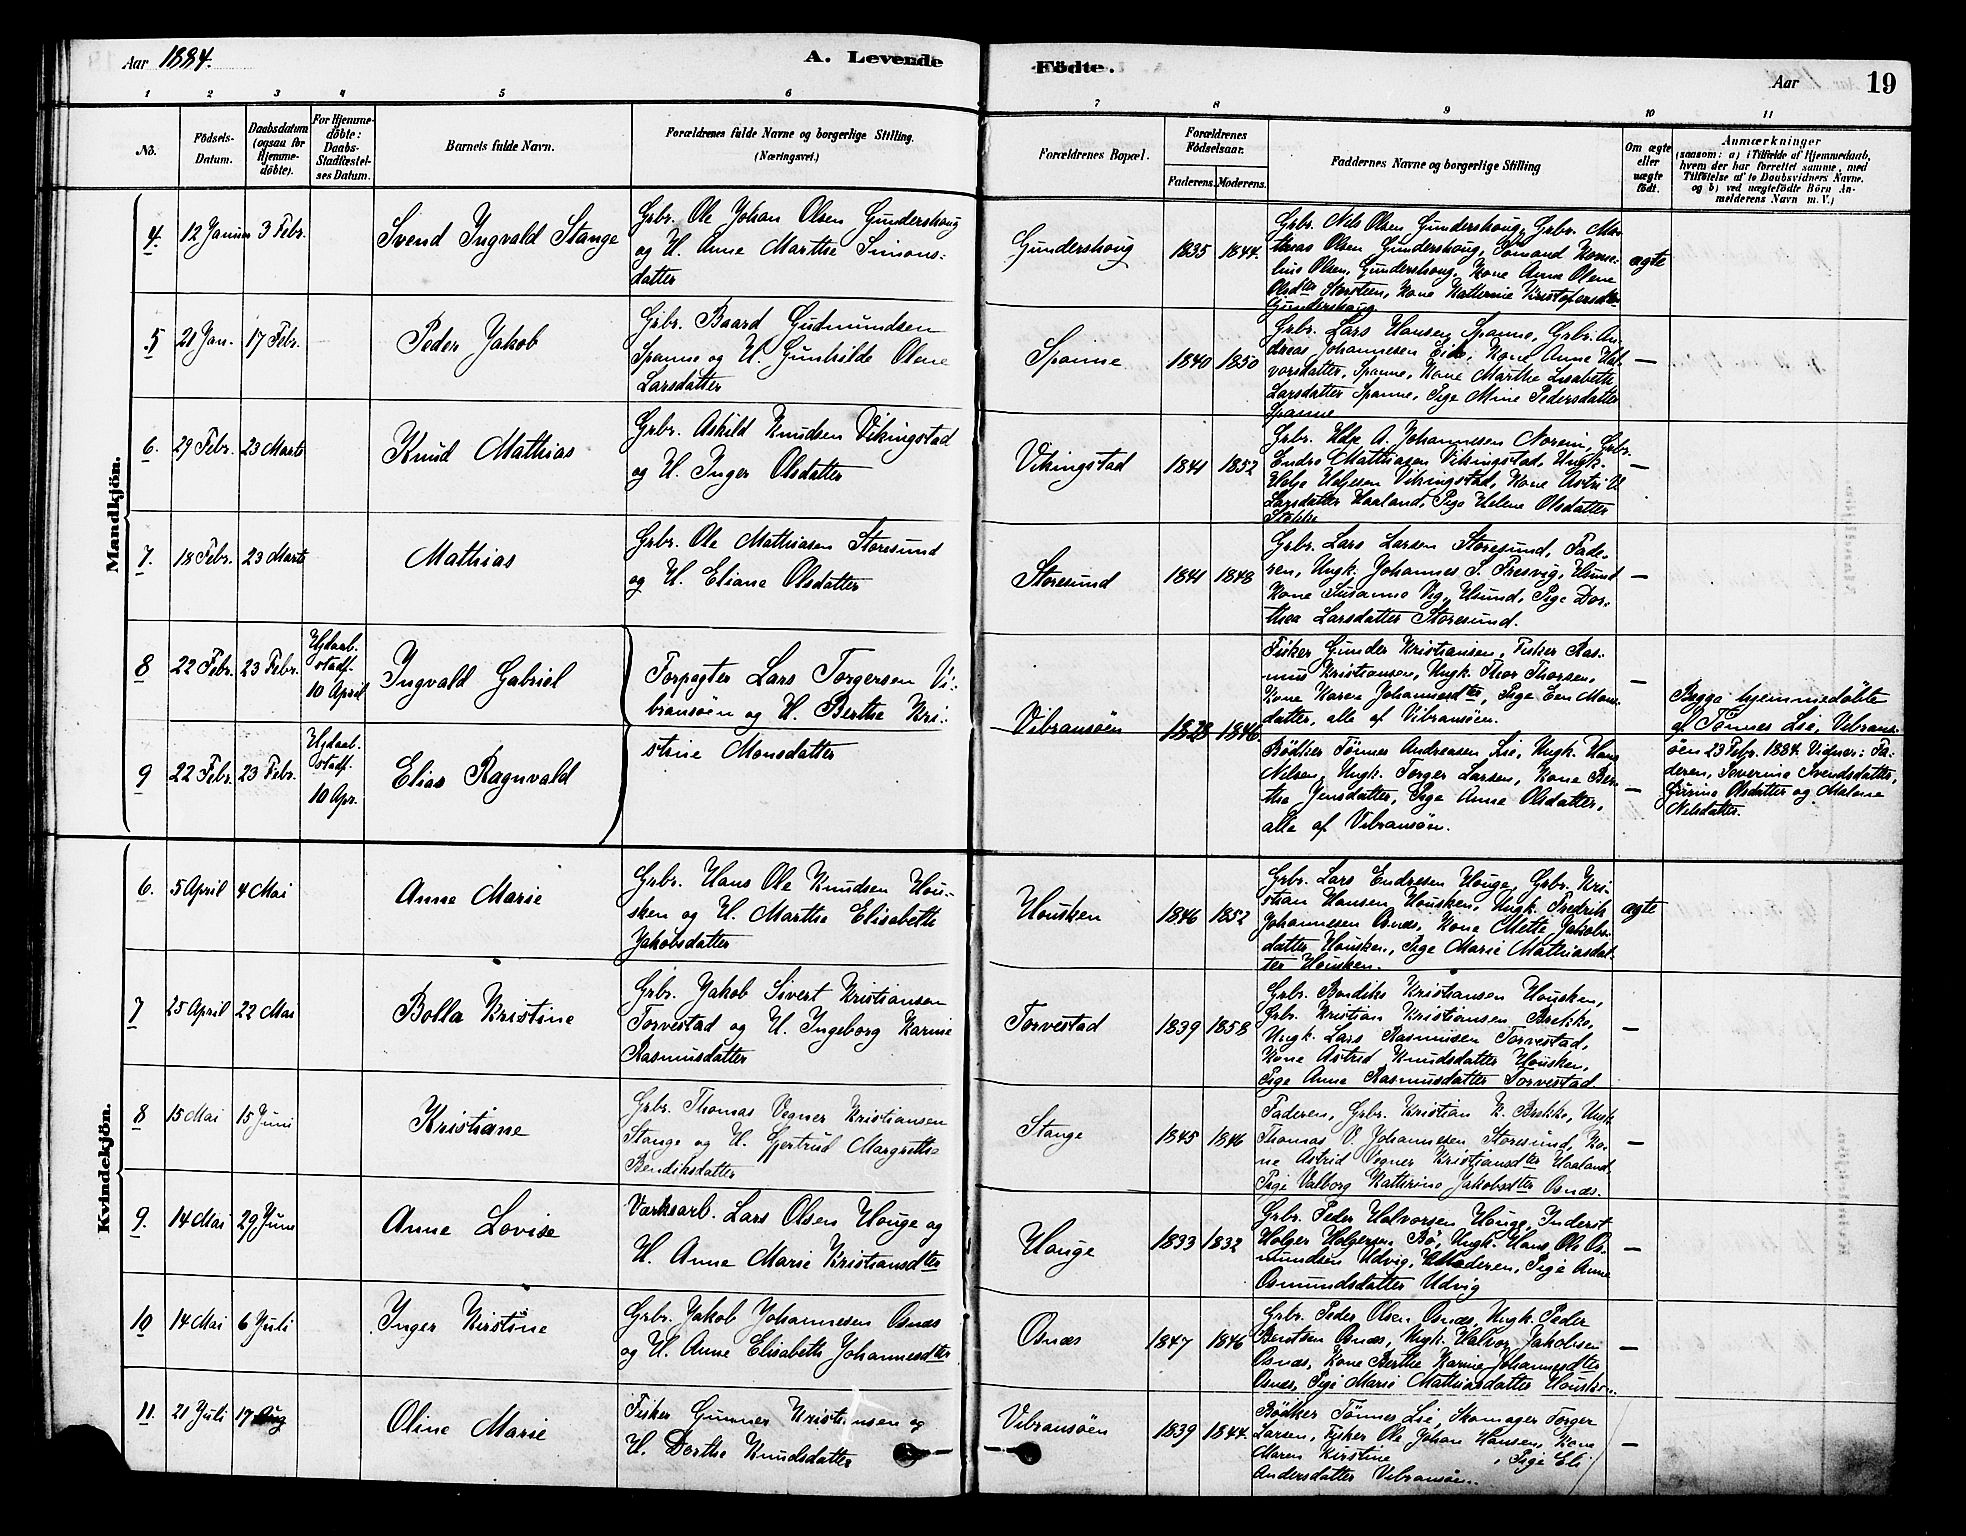 Aar 1884.
A. Levende
Födte.
Aar
19
1 2 3 4 5 6
7 8 9 10 11
No.
Födsels-
Datum.
Daabsdatum
(ogsaa for
Hjemme-
döbte).
For Hjemme-
döbte:
Daabs-
Stadfæstel-
ses Datum.
Barnets fulde Navn.
Forældrenes fulde Navne og borgerlige Stilling.
(Næringsvei.)
Forældrenes Bopæl.
Forældrenes
Födselsaar.
Faderens. Moderens.
Faddernes Navne og borgerlige Stilling
Om ægte
eller
uægte
födt.
Anmærkninger
(saasom: a) i Tilfælde af Hjemmedaab,
hvem der har forrettet samme, med
Tilföielse af to Daabsvidners Navne,
og b) ved uægtefödte Börn An-
melderens Navn m. V.)
Mandkjön.
4. 12 Januar 3 Febr. Svend Ingvald Stange
Grbr. Ole Johan Olsen Gundershoug
og H. Anne Marthe Simons-
datter
Gundershoug 1835 1844.
Grbr. Nils Olsen Gundershoug, Grbr. Ma-
thias Olsen Gundershoug, Sømand Korne-
lius Olsen, Gundershoug, Kone Anne Olene
Olsdter Storsteen, Kone Katherine Kristofersdter
Gundershoug
ægte
5 21 Jan. 17 Febr. Peder Jakob
Grbr. Baard Gudmundsen
Spanne og H. Gunhilde Olene
Larsdatter
Spanne 1840 1850
Grbr. Lars Hansen Spanne, Grbr. An-
dreas Johannesen Eide, Kone Anne Hal-
vorsdatter, Spanne, Kone Marthe Lisabeth
Larsdatter Spanne, Pige Mine Pedersdatter
Spanne
—
6. 29 Febr. 23 Marts Knud Mathias
Grbr. Askild Knudsen Vikingstad
og H. Inger Olsdatter
Vikingstad 1841 1852
Grbr. Helje A. Johannesen Norein, Grbr.
Endre Matthiasen Vikingstad, Ungk.
Helge Helgesen Vikingstad, Kone Astri H
Larsdatter Haaland, Pige Helene Olsdatter
Stokke
—
7. 18 Febr. 23 Marts Mathias
Grbr. Ole Mathiasen Storesund
og H. Eliane Olsdatter
Storesund 1841 1848
Grbr. Lars Larsen Storesund, Fade-
ren, Ungk. Johannes S. Fresvig, Husund
Kone Susanne Vig, Husund, Pige Dor-
thea Larsdatter Storesund.
—
8 22 Febr. 23 Febr. Hjdaab.
stadf.
10 April
Ingvald Gabriel
Forpagter Lars Torgersen Vi-
bransöen og H. Berthe Kri-
stine Monsdatter
Vibransöen 1828 1846
Fisker Gunder Kristiansen, Fisker Ras-
mus Kristiansen, Ungk. Thor Thorsen,
Kone Karen Johannesdter, Pige Een Mons-
datter, alle af Vibransöen.
—
9 22 Febr. 23 Febr. Hjdaab.
stadf.
10 Apr.
Elias Ragnvald
Bödker Tönnes Andreasen Lie, Ungk. Hans
Nilsen, Ungk. Torger Larsen, Kone Ber-
the Jensdatter, Pige Anne Olsdatter,
alle af Vibransöen.
—
Begge hjemmedöbte
af Tönnes Lie, Vibrans-
öen 23 Febr. 1884. Vidner: Fa-
deren, Severine Svendsdatter,
Gurine Olsdatter og Malene
Nilsdatter.
Kvindekjön.
6. 5 April 4 Mai Anne Marie
Grbr. Hans Ole Knudsen Hou-
sken og H. Marthe Elisabeth
Jakobsdatter
Housken 1846 1852
Grbr. Lars Endresen Houge, Grbr. Kri-
stian Hansen Housken, Ungk. Fredrik
Johannesen Osnæs, Kone Mette Jakobs-
datter Housken, Pige Marie Mathiasdat-
ter Housken.
ægte
7 25 April 22 Mai Bolla Kristine
Grbr. Jakob Sivert Kristiansen
Torvestad og H. Ingeborg Karine
Rasmusdatter
Torvestad 1839 1858
Grbr. Bendiks Kristiansen Housken,
Grbr. Kristian Kristiansen Brekke,
Ungk. Lars Rasmusen Torvestad,
Kone Astrid Knudsdatter Housken,
Pige Anne Rasmusdatter Torvestad
—
8 15 Mai 15 Juni Kristiane
Grbr. Thomas Vegner Kristiansen
Stange og H. Gjertrud Margrethe
Bendiksdatter
Stange 1845 1846
Faderen, Grbr. Kristian K. Brekke, Ungk
Thomas V. Johannesen Storesund, Ko-
ne Astrid Vegner Kristiansdter Haaland
Pige Valborg Kathrine Jakobsdter Osnæs.
—
9. 14 Mai 29 Juni Anne Lovise
Værksarb. Lars Olsen Houge og
H. Anne Marie Kristiansdter
Houge 1833 1832
Grbr. Peder Halvorsen Houge, Inderst
Holger Holgersen Bö, Ungk. Hans Ole Os-
mundsen Udvig, Moderen, Pige Anne
Osmundsdatter Udvig
—
10 14 Mai 6 Juli Inger Kirstine
Grbr. Jakob Johannesen Osnæs
og H. Anne Elisabeth Johannesdter
Osnæs 1847 1846
Grbr. Peder Olsen Osnæs, Ungk. Peder
Bentsen Osnæs, Ungk. Halvor Jakobsen
Osnæs, Kone Berthe Karine Johannesdter
Osnæs, Pige Marie Mathiasdatter Housken
—
11. 21 Juli 17 Aug Oline Marie
Fisker Gunner Kristiansen og
H. Dorthe Knudsdatter
Vibransöen 1839 1844.
Bödker Tönnes Lie, Skomager Torger
Larsen, Fisker Ole Johan Hansen, Kone
Maren Kirstine , Pige Eli
Andersdatter Vibransöen.
—